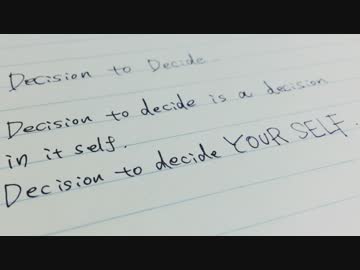 Decision to Decide
Decision to decide is a decision
in it self.
Decision to decide YOUR SELF.